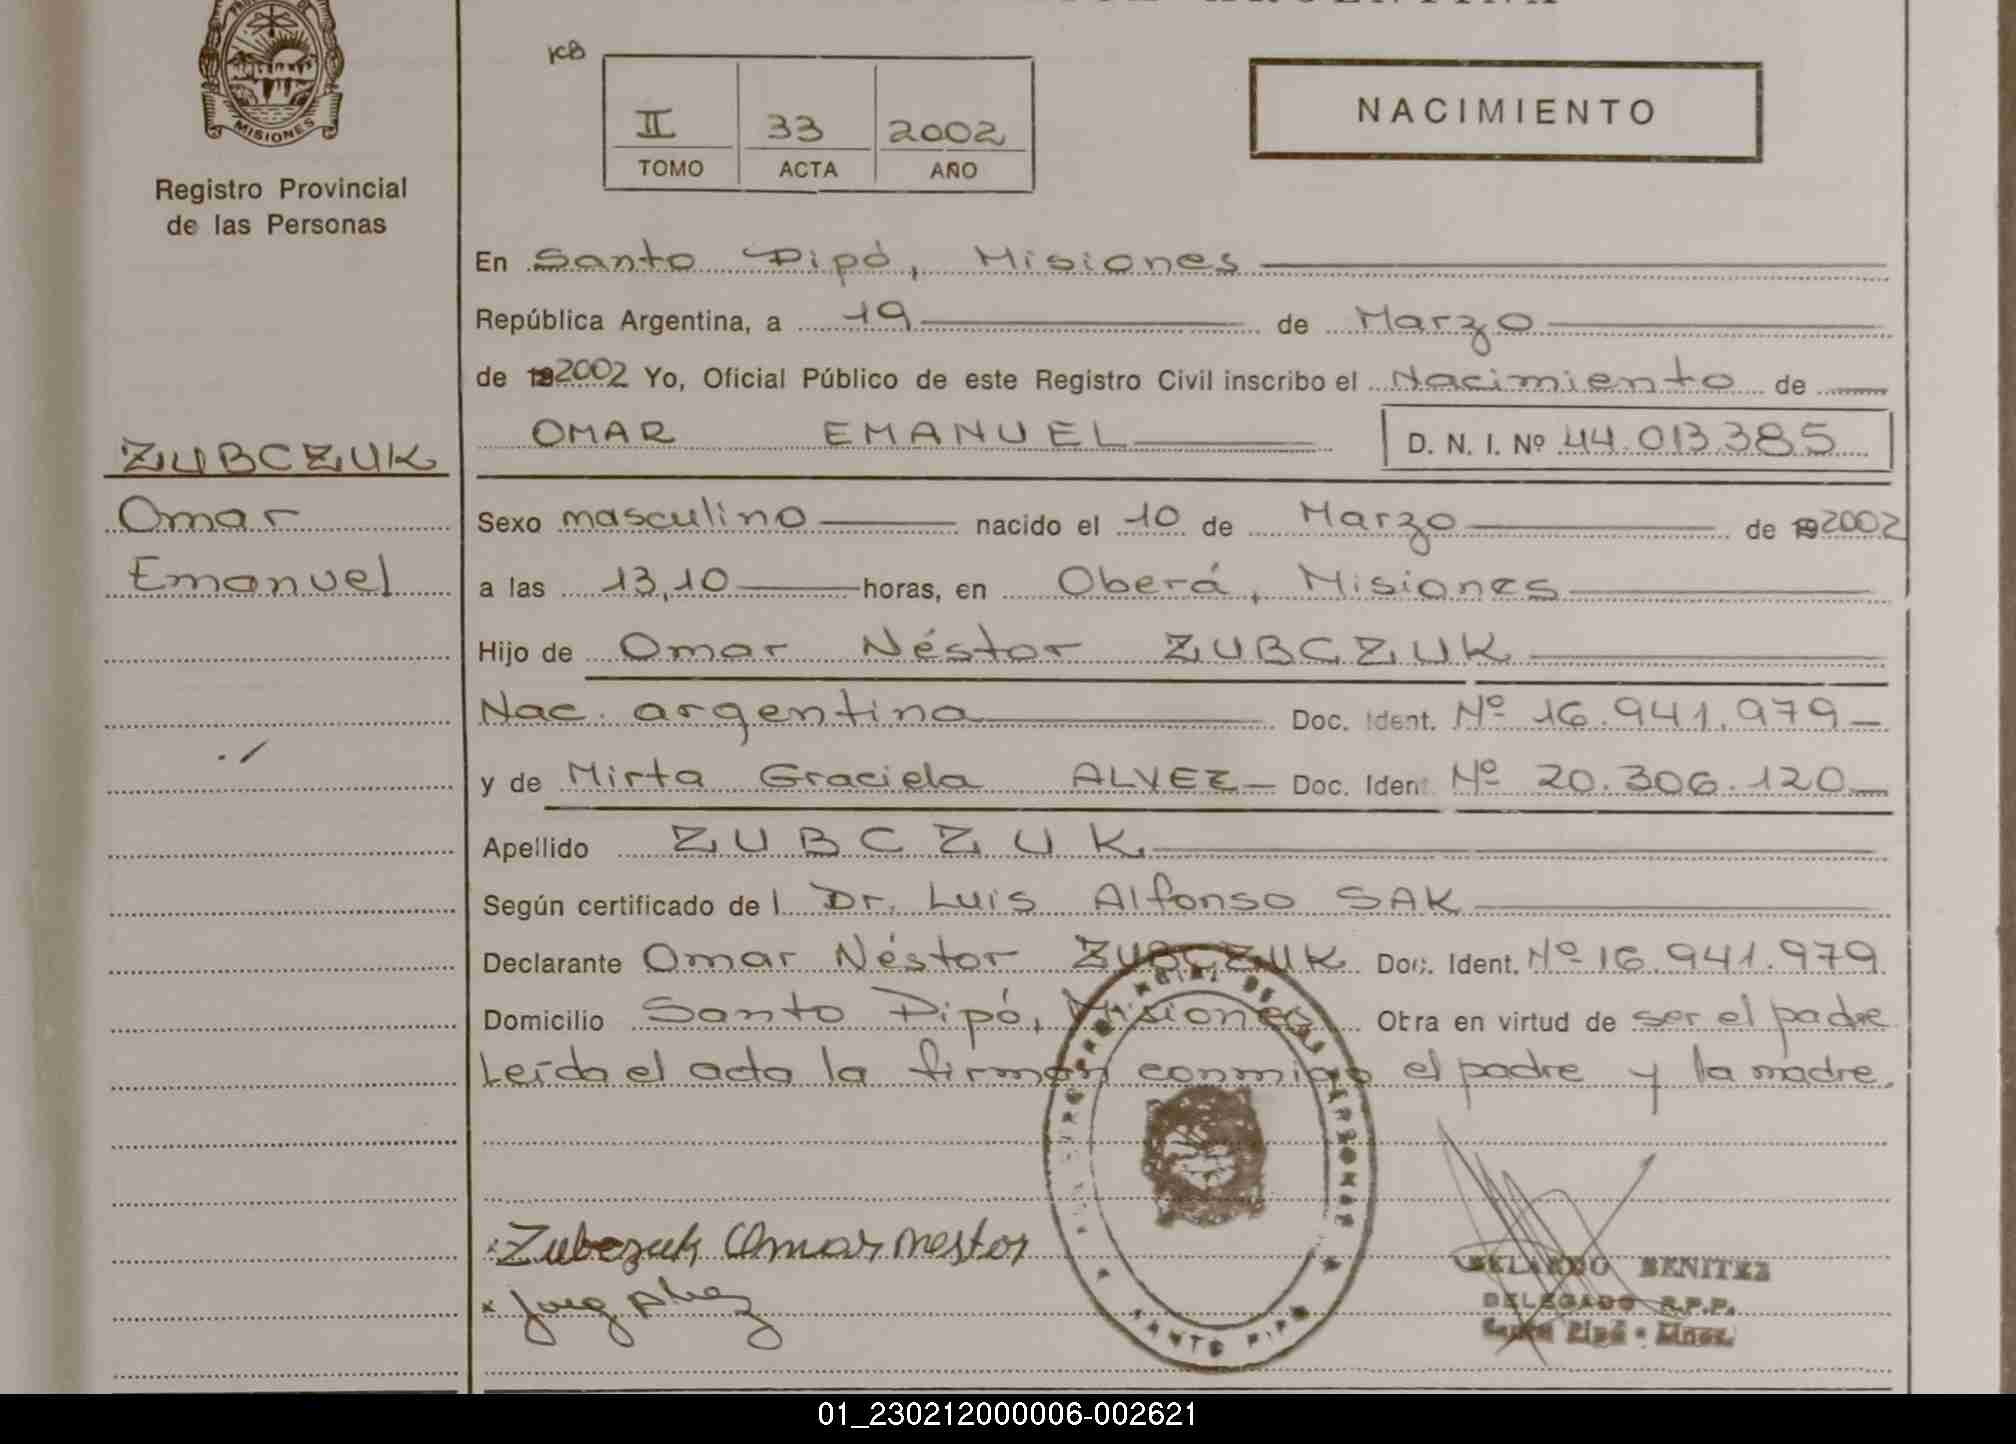 MISIONES
Registro Provincial
de las Personas
KB
II 33 2002
TOMO ACTA AÑO
NACIMIENTO
En Santo Pipó, Misiones
República Argentina, a 19 de Marzo
de 192002 Yo, Oficial Público de este Registro Civil inscribo el Nacimiento de
OMAR EMANUEL D. N. I. Nº 44.013.385
ZUBCZUK
Omar
Emanuel
Sexo masculino nacido el 10 de Marzo de 192002
a las 13,10 horas, en Oberá, Misiones
Hijo de Omar Néstor ZUBCZUK
Nac. argentina Doc. Ident. Nº 16.941.979
y de Mirta Graciela ALVEZ Doc. Ident. Nº 20.306.120
Apellido ZUBCZUK
Según certificado del Dr. Luis Alfonso SAK
Declarante Omar Néstor ZUBCZUK Doc. Ident. Nº 16.941.979
Domicilio Santo Pipó, Misiones Obra en virtud de ser el padre
Leída el acta la firman conmigo el padre y la madre.
Zubczuk Omar nestor
BENITEZ
DELEGADO R.P.P.
Santo Pipó - Mnes.
SANTO PIPO
01_230212000006-002621